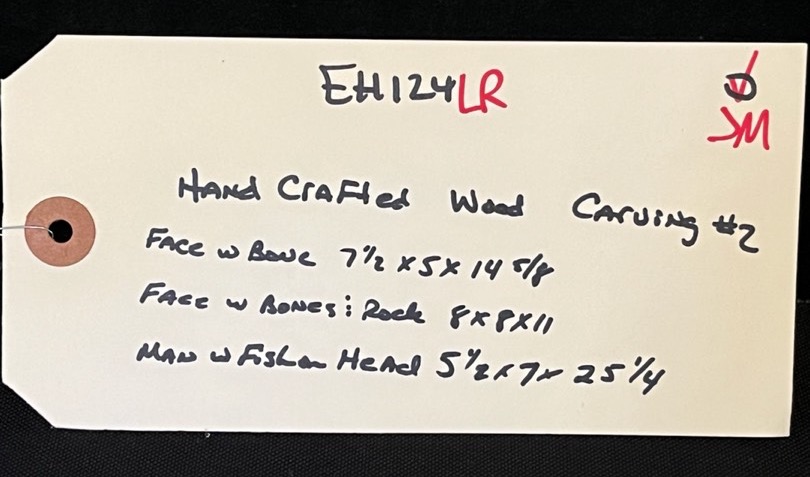 EH124LR
JM
Hand Crafted Wood Carving #2
Face w Bone 7 1/2 x 5 x 14 5/8
Face w Bones & Rock 8x8x11
Man w Fish on Head 5 1/2 x 7 x 25 1/4